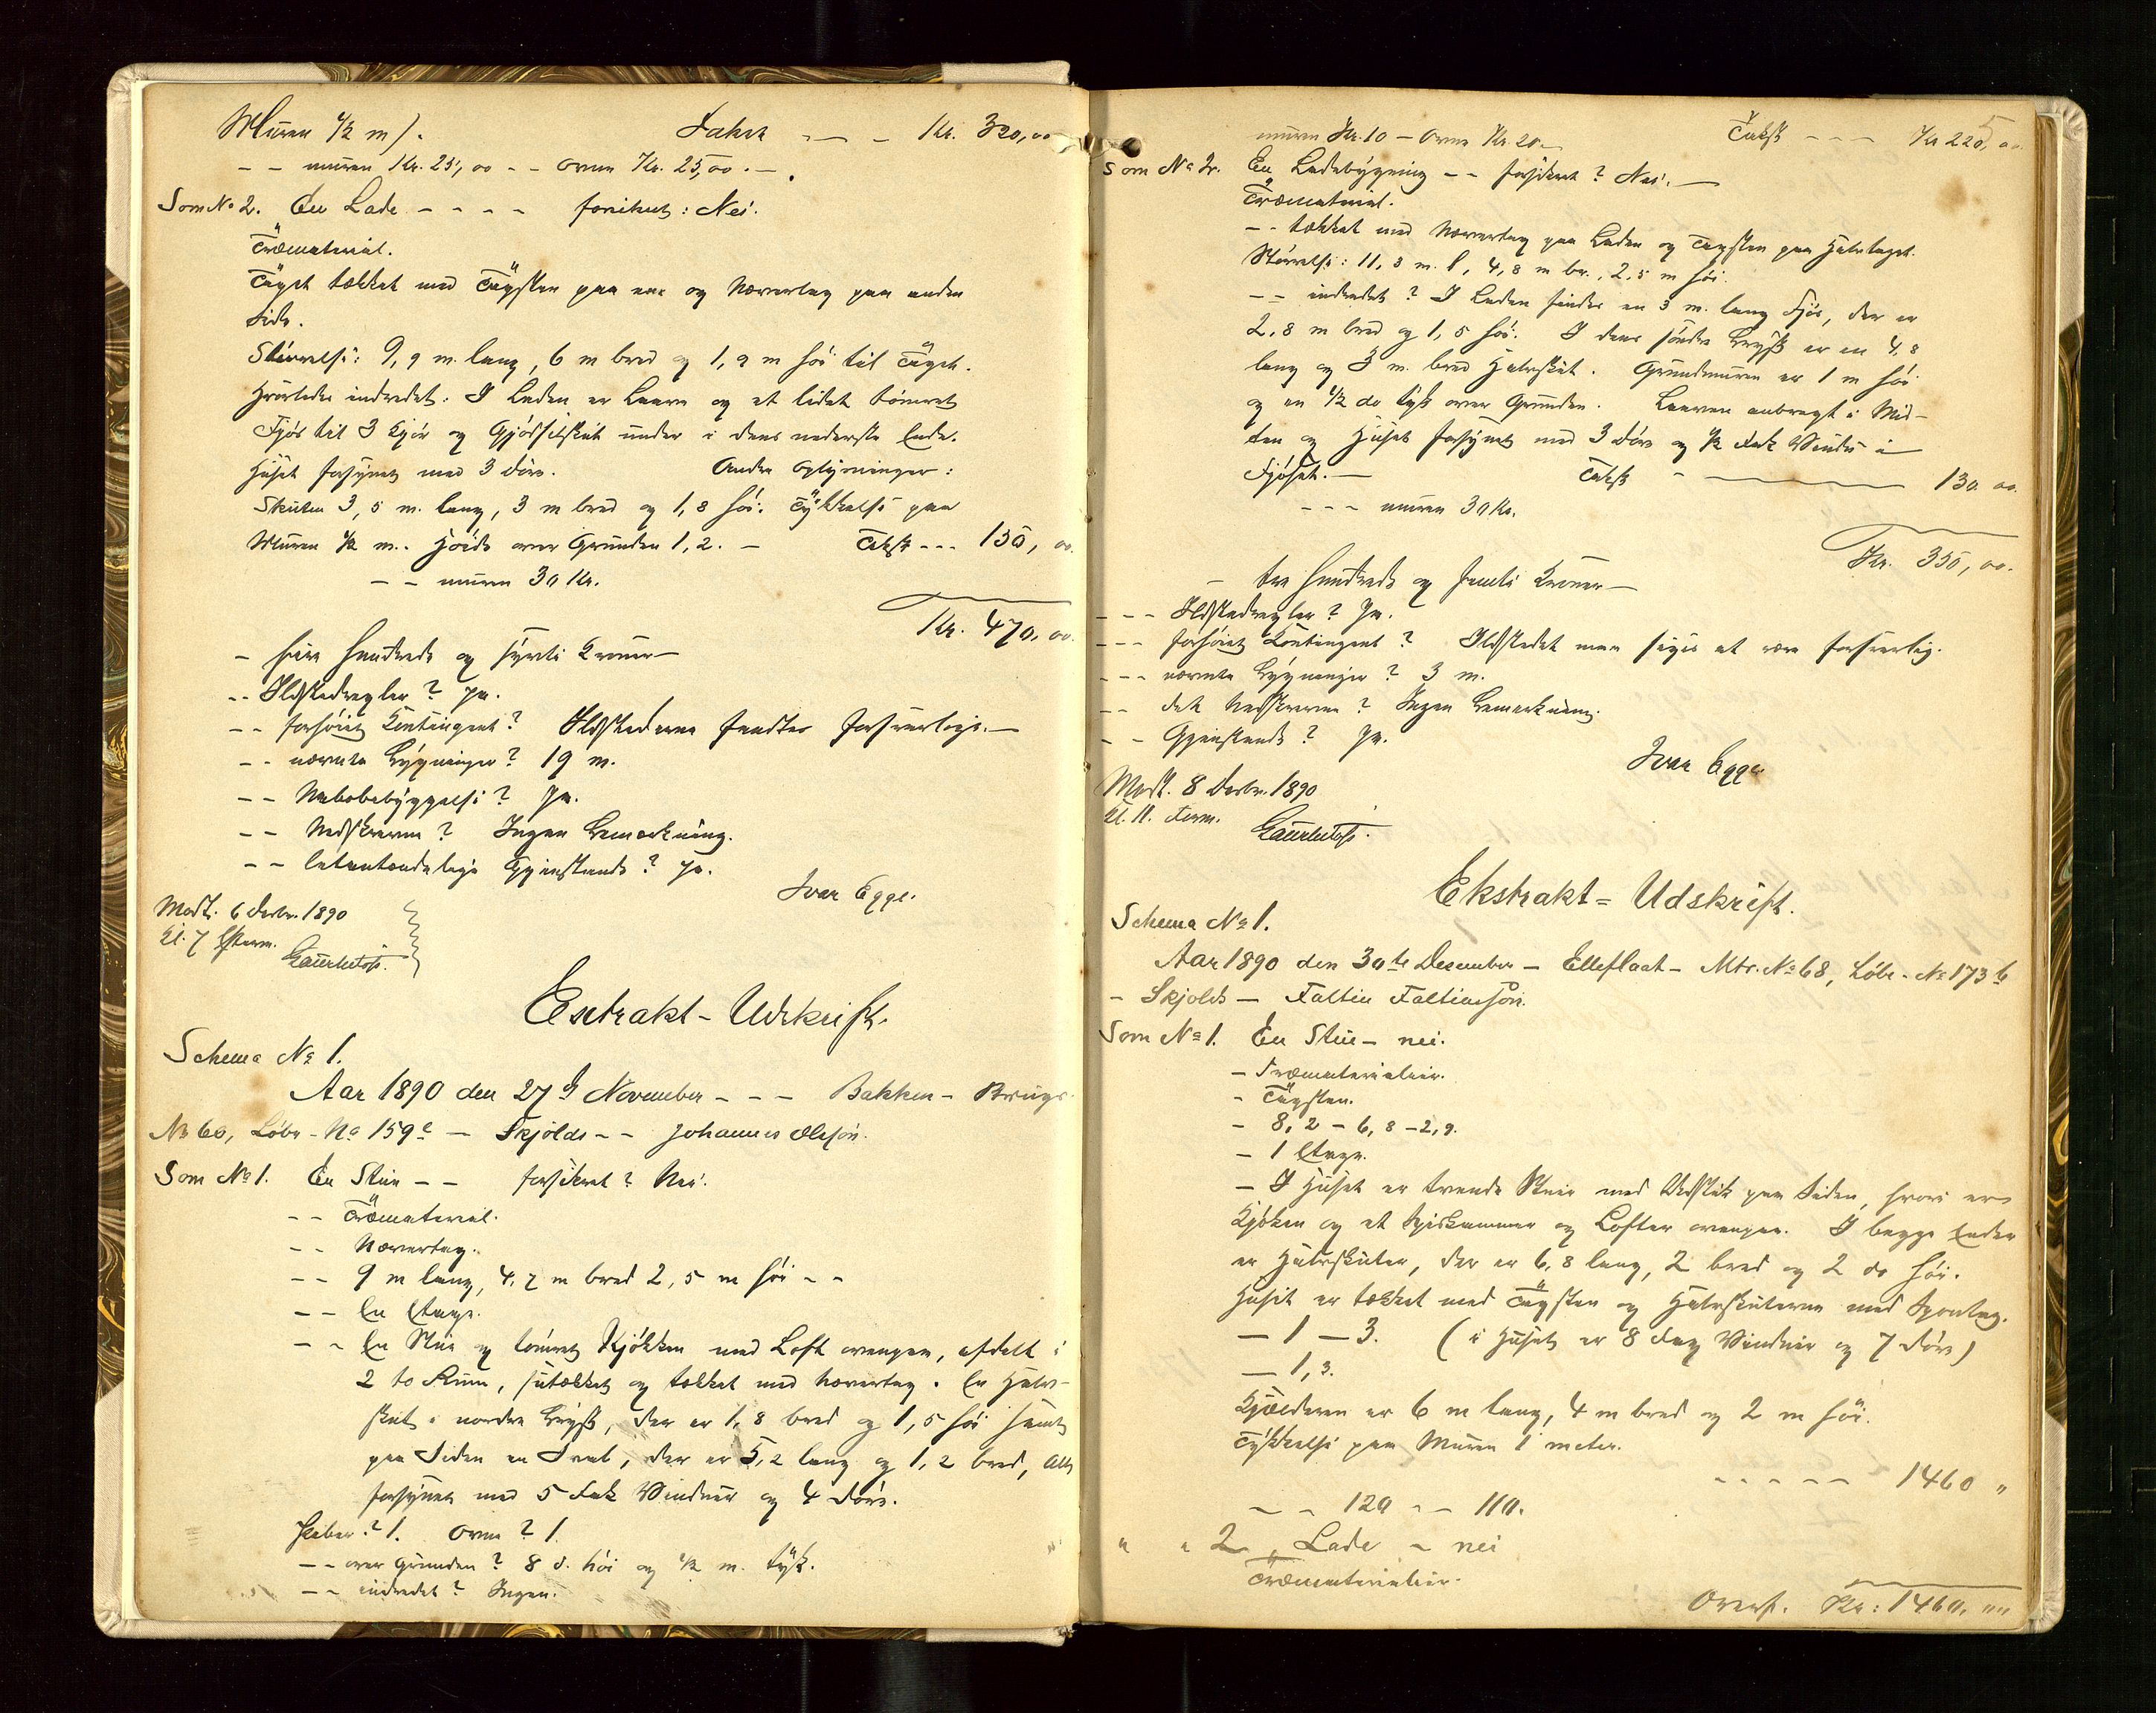 Muren 1/2 m). Takst — - Kr. 320,00
- - muren Kr. 25,00 - - ovne Kr. 25,00. —
Som No 2. En Lade - - - - forsikret: Nei.
Træmaterial.
Taget tækket med Tagsten paa ene og Nævertag paa anden
Side.
Størrelse: 9,9 m. lang, 6 m bred og 1,9 m høi til Taget.
Hvorledes indredet: I Laden er Laave og et lidet tømret
Fjøs til 3 Kjør og Gjødselskut under i dens nederste Ende.
Huset forsynet med 3 Døre. Andre Oplysninger:
Skuten 3,5 m. lang, 3 m bred og 1,8 høi. Tykkelse paa
Muren 1/2 m. Høide over Grunden 1,2. — Takst - - - 150,00.
- - muren 30 Kr.
Kr. 470,00.
- fire hundrede og sytti Kroner —
- - Ildstedregler? Ja.
- - forhøiet Kontingent? Ildstederne fandtes forsvarlige. —
- - nærmeste Bygninger? 19 m.
- - Nabobebyggelse? Ja.
- - Nedskreven? Ingen Bemærkning.
- - letantændelige Gjenstande? Ja.
Ivar Egge.
Modt. 6 Decbr. 1890
Kl. 7 Efterm.
Extrakt - Udskrift.
Schema No 1.
Aar 1890 den 27de November - - - Bakken - Brugs-
No 60, Løbe-No 159c — Skjolds - - Johannes Olsen.
Som No 1. En Stue - - forsikret? Nei.
- - Træmaterial.
- - Nævertag.
- - 9 m lang, 4,7 m bred 2,5 m høi - -
- - En Etage.
- - En Stue og tømret Kjøkken med Loft ovenpaa, afdelt i
2 to Rum, og tækket med Nævertag. En Halv-
skut i nordre Bryst, der er 1,8 bred og 1,5 høi samt
paa Siden en Sval, der er 5,2 lang og 1,2 bred, Alt
forsynet med 5 Fak Vinduer og 4 Døre.
Piber? 1. Ovne? 1.
- - over Grunden? 8 d. høi og 1/2 m. tyk.
- - indredet? Ingen.
muren Kr. 10 — Ovne Kr. 20 — Takst - - - Kr 220,00
Som No 2. En Ladebygning - - forsikret? Nei. —
Træmaterial.
- - tækket med Nævertag paa Laden og Tagsten paa Halvtaget.
Størrelse: 11,3 m. l, 4,8 m br., 2,5 m høi.
- - indredet? I Laden findes en 3 m. lang Fjøs, der er
2,8 m bred og 1,5 høi. I dens søndre Bryst er en 4,8
lang og 3 m. bred Halvskut. Grundmuren er 1 m høi
og en 1/2 do tyk over Grunden. Laaven anbragt i Mid-
ten og Huset forsynet med 3 Døre og 1/2 Fak Vindu i
Fjøset. — Takst - — 130 00.
- - - muren 30 Kr.
Kr. 350,00.
- tre hundrede og femti Kroner —
- - - Ildstedregler? Ja.
- - - forhøiet Kontingent? Ildstedet maa siges at være forsvarlig.
- - - nærmeste Bygninger? 3 m.
- - det Nedskrevne? Ingen Bemærkning.
- - Gjenstande? Ja.
Ivar Egge.
Modt. 8 Decbr. 1890
Kl. 11. Form.
Ekstrakt = Udskrift.
Schema No 1.
Aar 1890 den 30te December — Elleflaat — Mtr. No 68, Løbe-No 173 b
- Skjolds — Faltin Faltinsøn.
Som No 1. En Stue — nei.
- Træmaterialier.
- Tagsten.
- 8,2 - 6,8 - 2,9.
- 1 Etage.
- I Huset er trende Stuer med Udskut paa Siden, hvori er
Kjøken og et Spiskammer og Lofter ovenpaa. I begge Ender
er Halvskuter, der er 6,8 lang, 2 bred og 2 do høi.
Huset er tækket med Tagsten og Halvskuterne med Spontag.
— 1 — 3. (i Huset er 8 Fag Vinduer og 7 Døre)
— 1,3.
Kjælderen er 6 m lang, 4 m bred og 2 m høi.
Tykkelse paa Muren 1 meter.
- - - - - 1460 "
- - 120 - - 110.
" " 2 „ Lade - nei
Træmaterialier.
Overf. Kr: 1460, ""